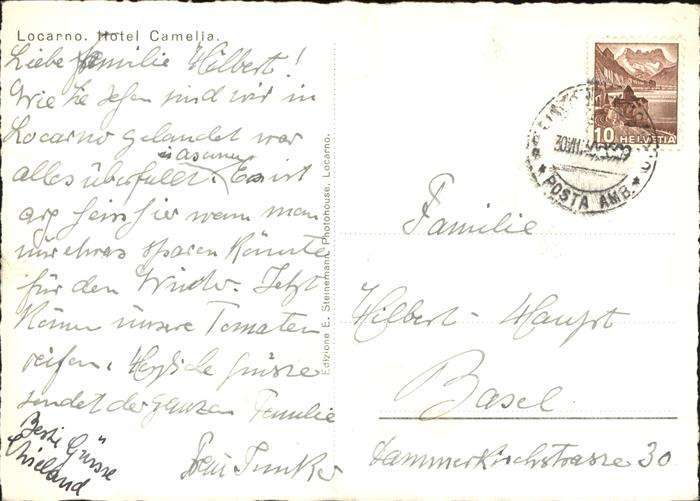 Locarno. Hotel Camelia.
Liebe Familie Hilbert!
Wie Sie sehen sind wir in
Locarno gelandet war
in Ascona
alles überfüllt. Es ist
arg fein hier wenn man
nur etwas sparen könnte
für den Winter. Jetzt
können unsere Tomaten
reifen. Herzliche Grüsse
sendet der ganzen Familie
Frau Junker
Beste Grüsse
Wieland
Edizione E. Steinemann, Photohouse, Locarno.
10 HELVETIA
POSTA AMB.
Familie
Hilbert-Haupt
Basel
Dammerkirchstrasse 30